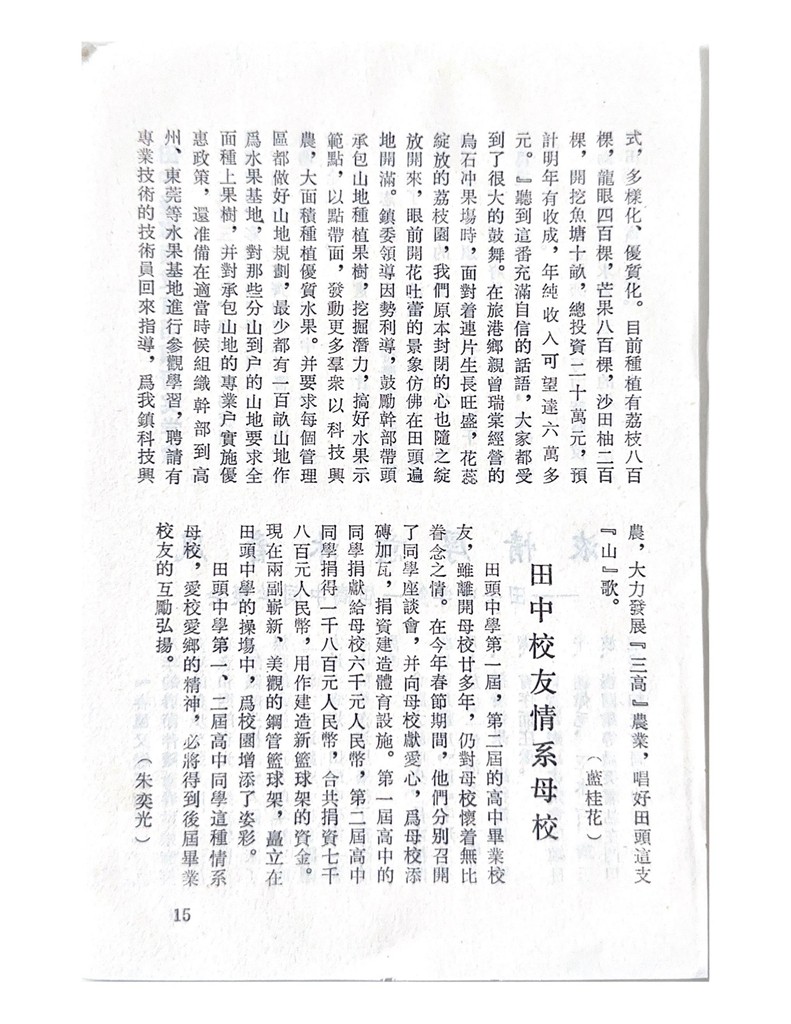 式，多樣化、優質化。目前種植有荔枝八百
棵，龍眼四百棵，芒果八百棵，沙田柚二百
棵，開挖魚塘十畝，總投資二十萬元，預
計明年有收成，年純收入可望達六萬多
元。』聽到這番充滿自信的話語，大家都受
到了很大的鼓舞。在旅港鄉親曾瑞棠經營的
烏石冲果場時，面對着連片生長旺盛，花蕊
綻放的荔枝園，我們原本封閉的心也隨之綻
放開來，眼前開花吐蕾的景象仿佛在田頭遍
地開滿。鎮委領導因勢利導，鼓勵幹部帶頭
承包山地種植果樹，挖掘潛力，搞好水果示
範點，以點帶面，發動更多羣衆以科技興
農，大面積種植優質水果。并要求每個管理
區都做好山地規劃，最少都有一百畝山地作
爲水果基地，對那些分山到户的山地要求全
面種上果樹，并對承包山地的專業户實施優
惠政策，還准備在適當時候組織幹部到高
州、東莞等水果基地進行參觀學習，聘請有
專業技術的技術員回來指導，爲我鎮科技興
農，大力發展『三高』農業，唱好田頭這支
『山』歌。
（藍桂花）
田中校友情系母校
田頭中學第一屆，第二屆的高中畢業校
友，雖離開母校廿多年，仍對母校懷着無比
眷念之情。在今年春節期間，他們分别召開
了同學座談會，并向母校獻愛心，爲母校添
磚加瓦，捐資建造體育設施。第一屆高中的
同學捐獻給母校六千元人民幣，第二屆高中
同學捐得一千八百元人民幣，合共捐資七千
八百元人民幣，用作建造新籃球架的資金。
現在兩副嶄新、美觀的鋼管籃球架，矗立在
田頭中學的操塲中，爲校園增添了姿彩。
田頭中學第一、二屆高中同學這種情系
母校，愛校愛鄉的精神，必將得到後屆畢業
校友的互勵弘揚。
（朱奕光）
15